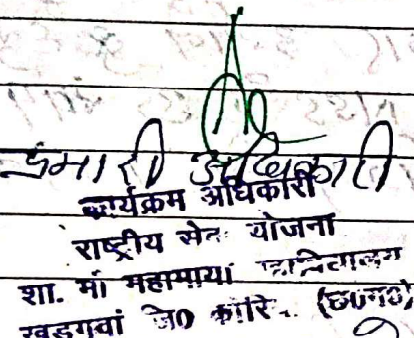 प्रभारी अधिकारी
कार्यक्रम अधिकारी
राष्ट्रीय सेवा योजना
शा. माँ महामाया महाविद्यालय
खड़गवां जि0 कोरिया (छ0ग0)